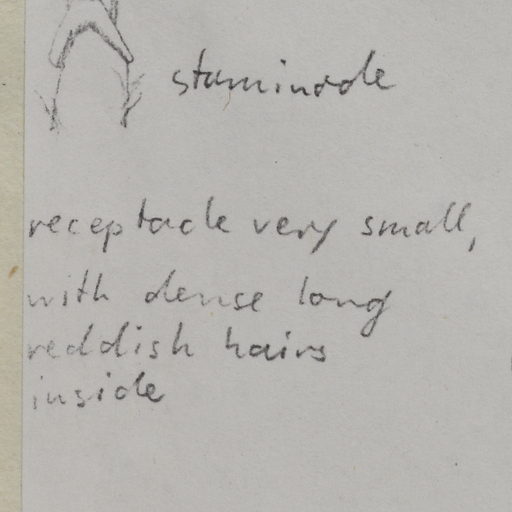 staminode
receptacle very small,
with dense long
reddish hairs
inside